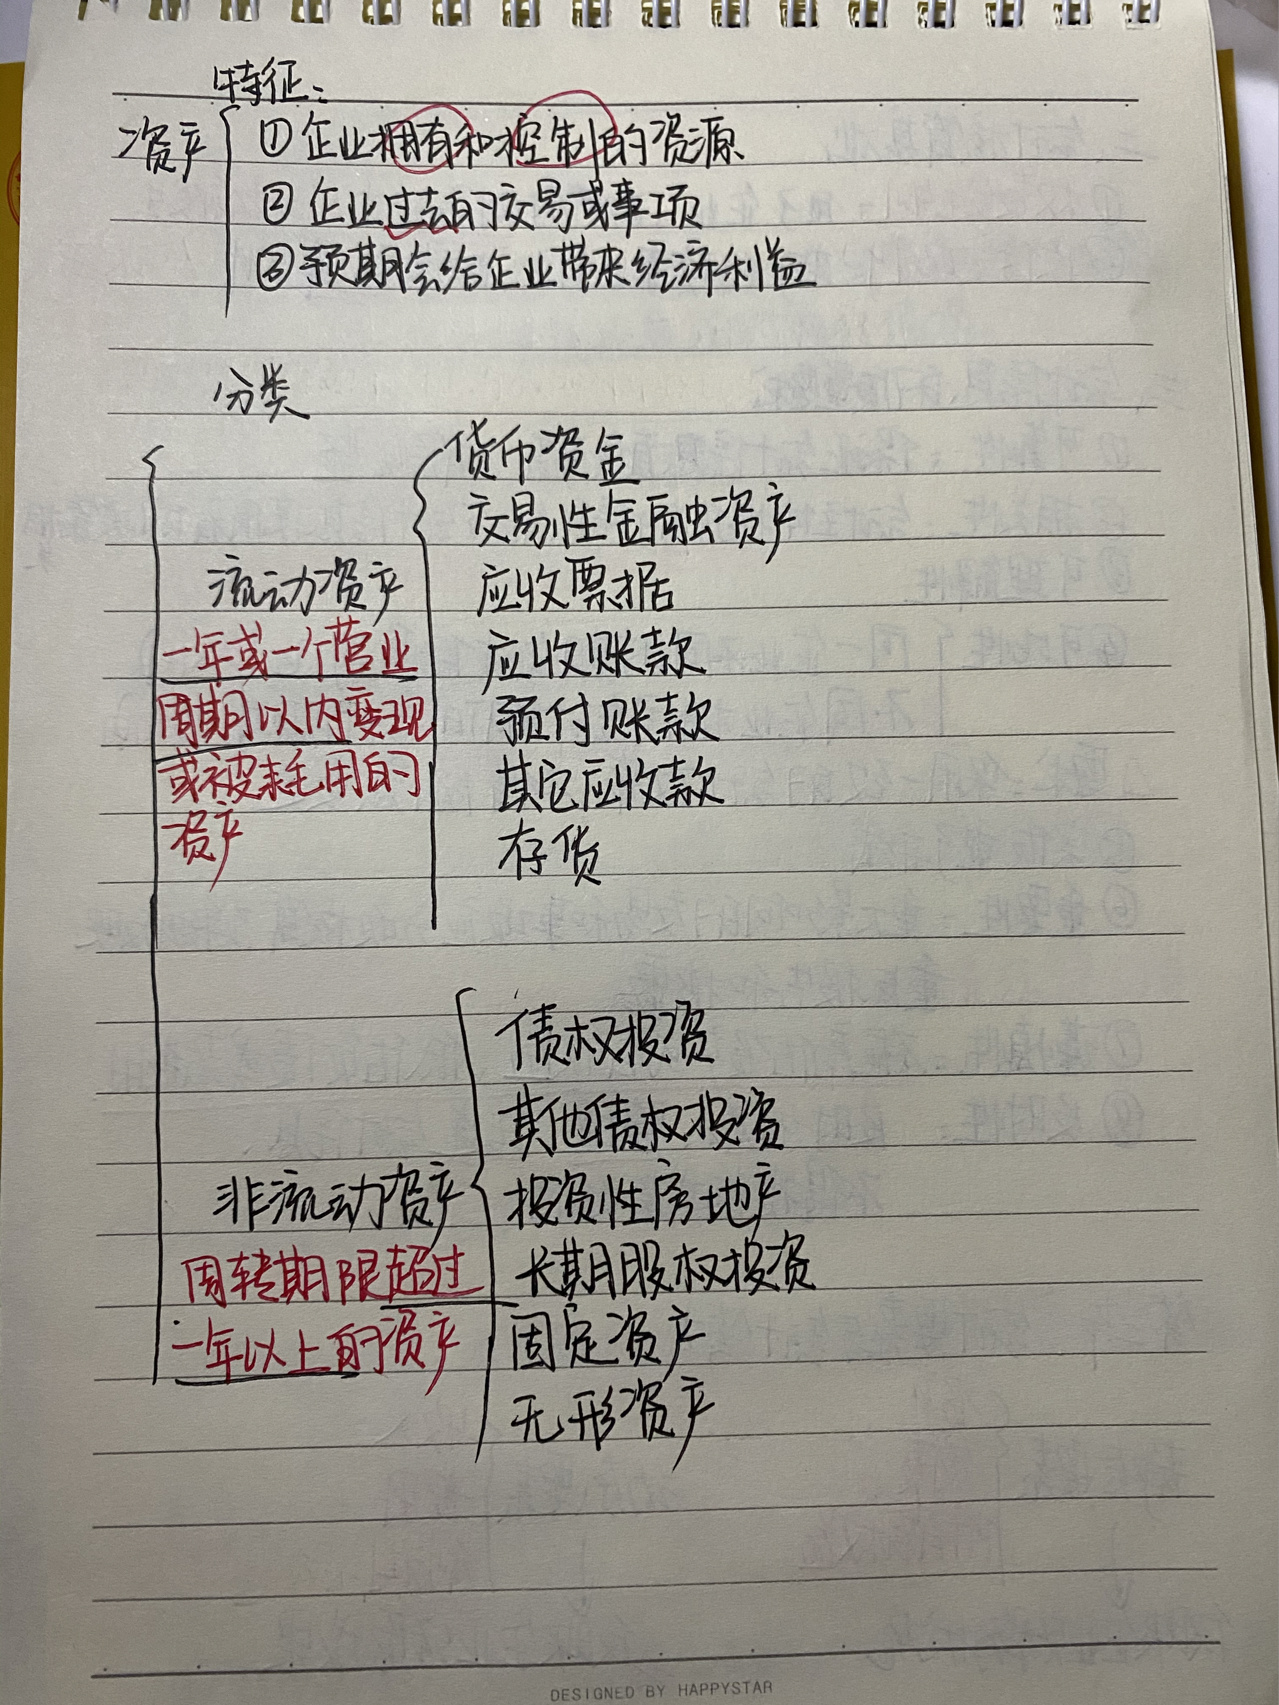 特征：
资产
①企业拥有和控制的资源
②企业过去的交易或事项
③预期会给企业带来经济利益
分类
流动资产
一年或一个营业
周期以内变现
或被耗用的
资产
货币资金
交易性金融资产
应收票据
应收账款
预付账款
其它应收款
存货
非流动资产
周转期限超过
一年以上的资产
债权投资
其他债权投资
投资性房地产
长期股权投资
固定资产
无形资产
DESIGNED BY HAPPYSTAR